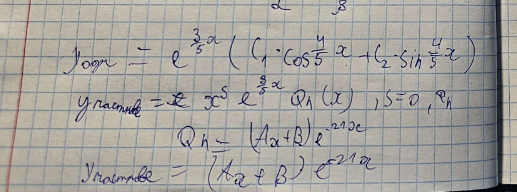 2 β
Yоди = e^{3/5 x} (C₁·cos 4/5 x + C₂·sin 4/5 x)
Yчастное = x^s e^{3/5 x} Qn(x), s=0,
Qn = (Ax+B) e^{-21x}
Yчастное = (Ax+B) e^{-21x}